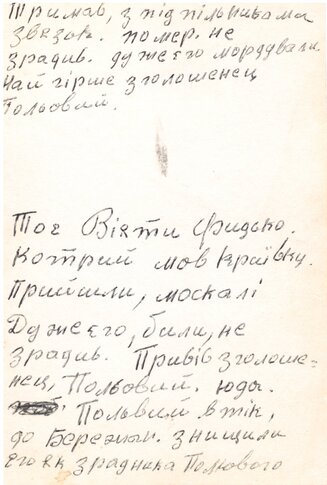 тримав, з підпільниками
звязок. помер. не
зрадив. дуже его мордували.
Най гірше зголошенец
Польовий.
Тог Вікти Фридько.
Котрий мов Краївку.
Прийшли, москалі
Дуже его, били, не
зрадив. Привів зголоше=
нец, Польовий. юда.
Польвий втік,
до Бережан. знищили
его як зрадника Полкового